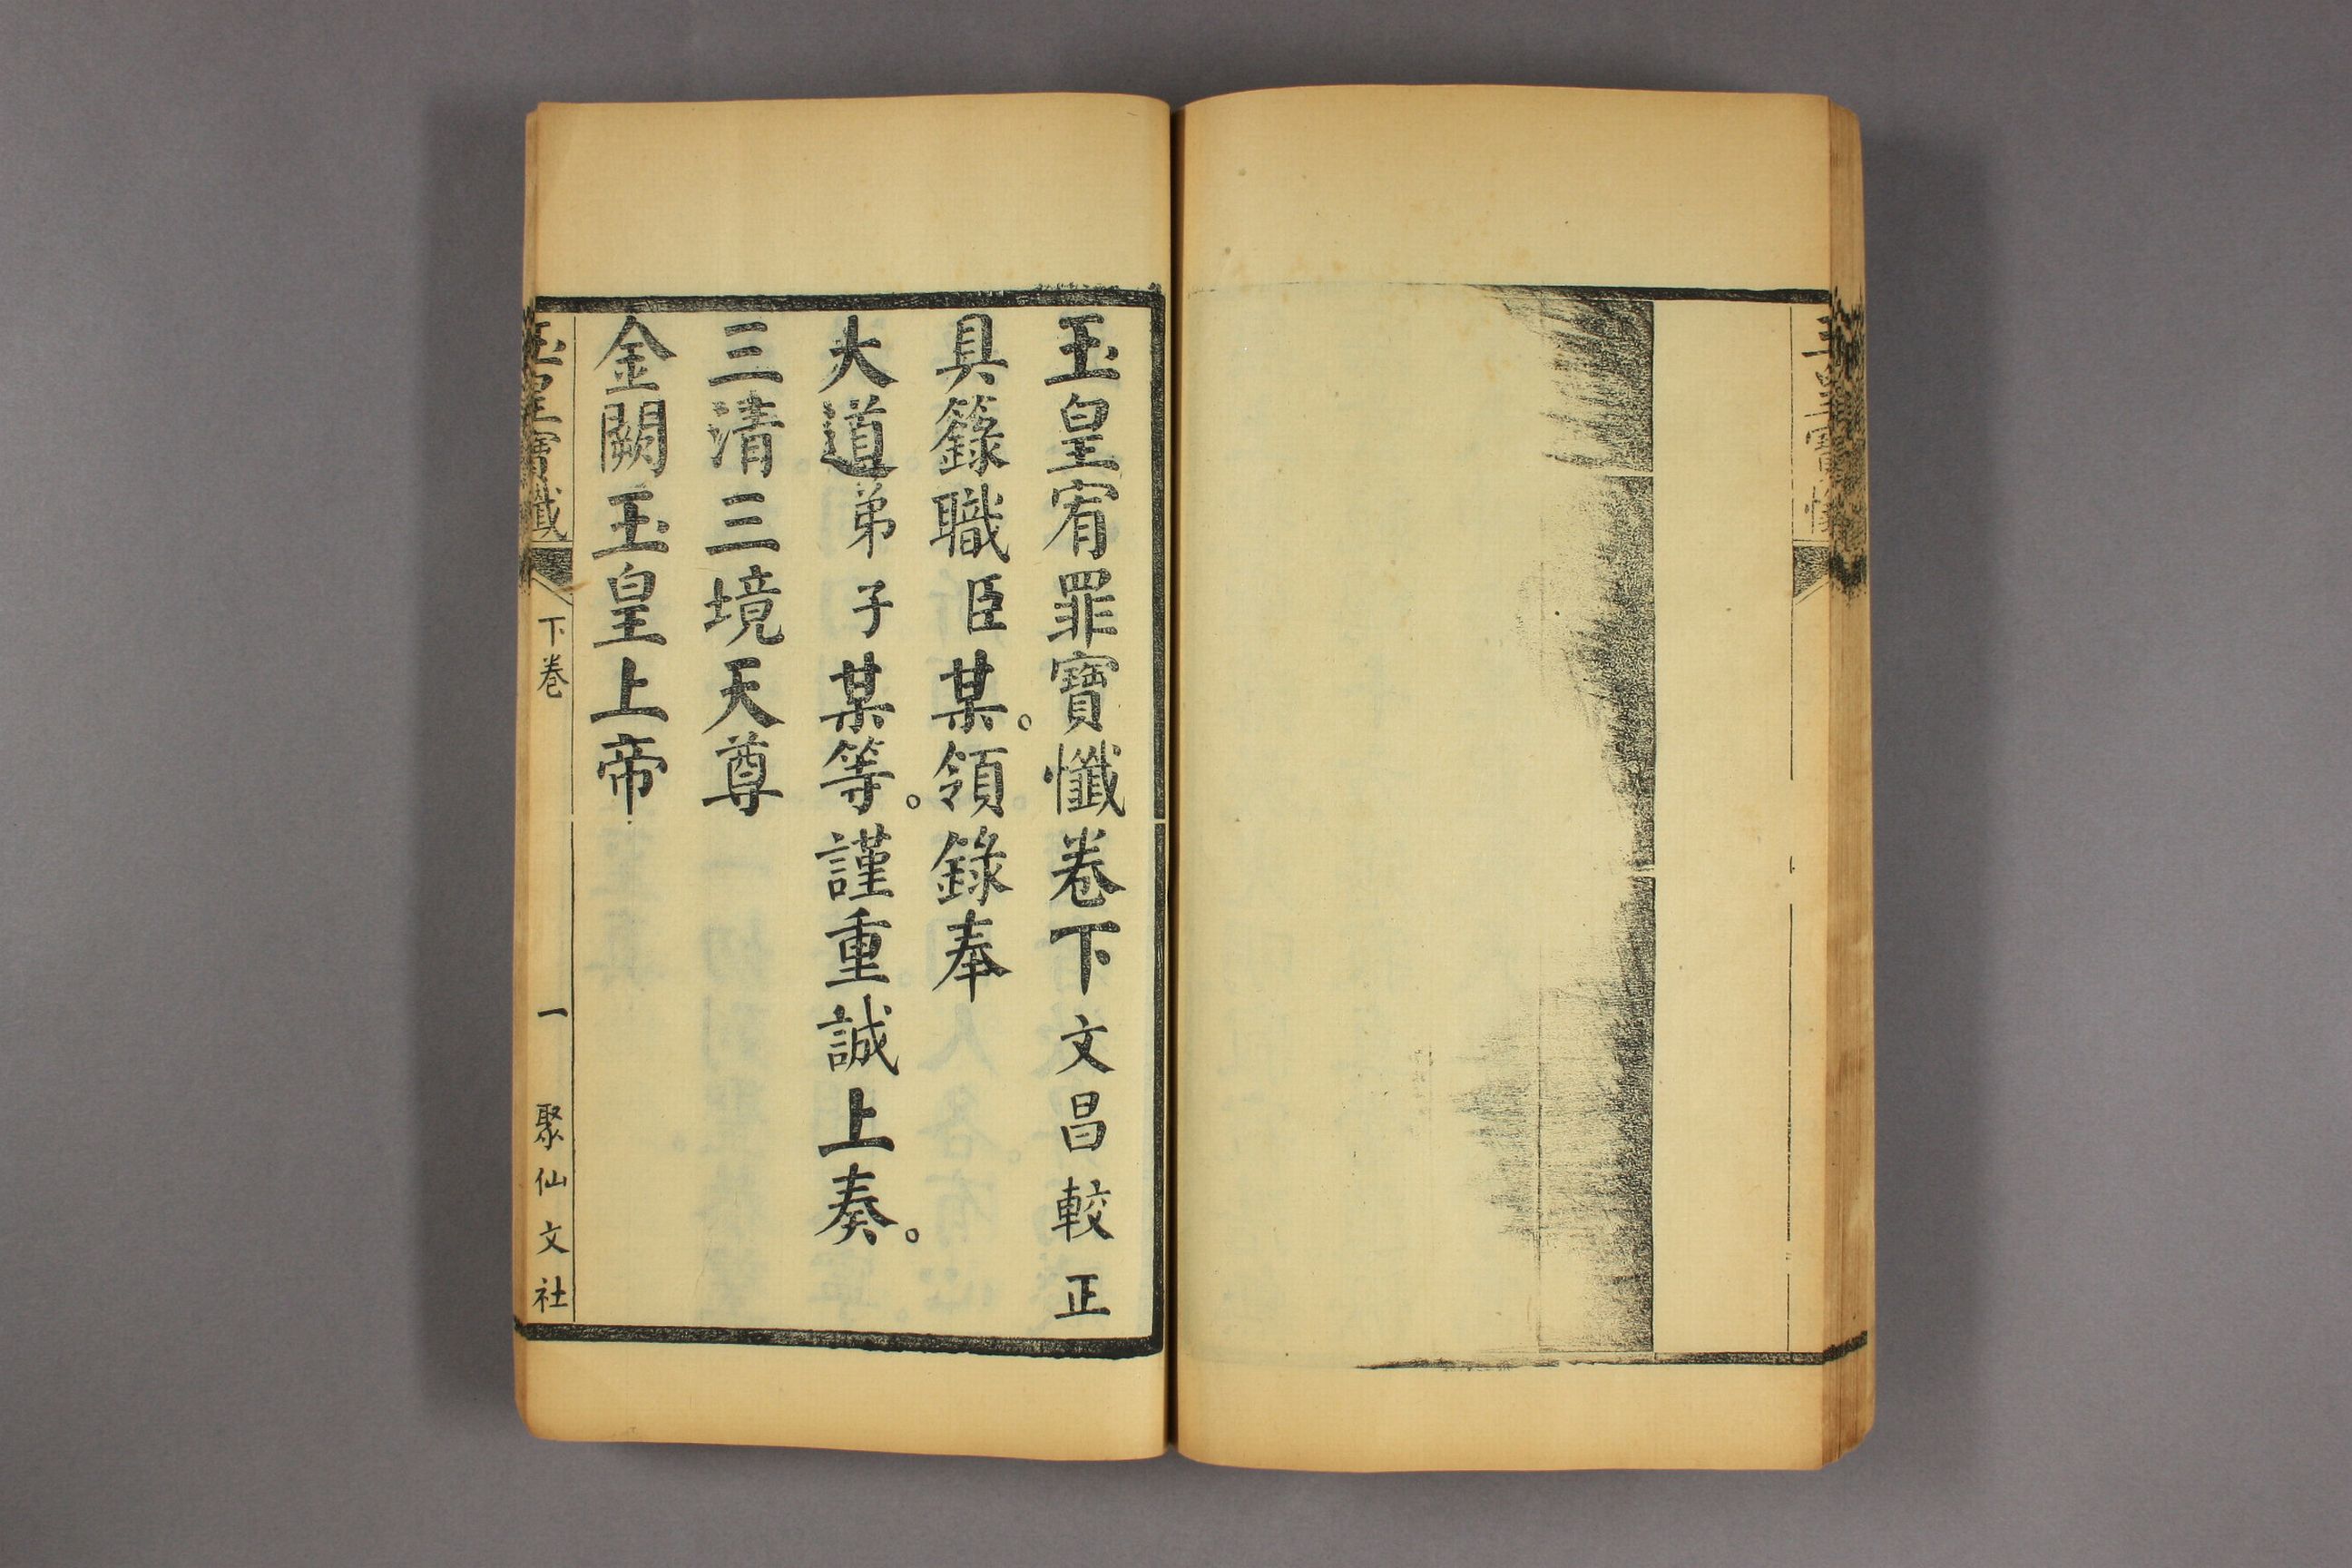 玉皇寶懺
玉皇宥罪寶懺卷下文昌較正
具籙職臣某。領錄奉
大道弟子某等。謹重誠上奏。
三清三境天尊
金闕玉皇上帝
玉皇寶懺 下卷 一 聚仙文社